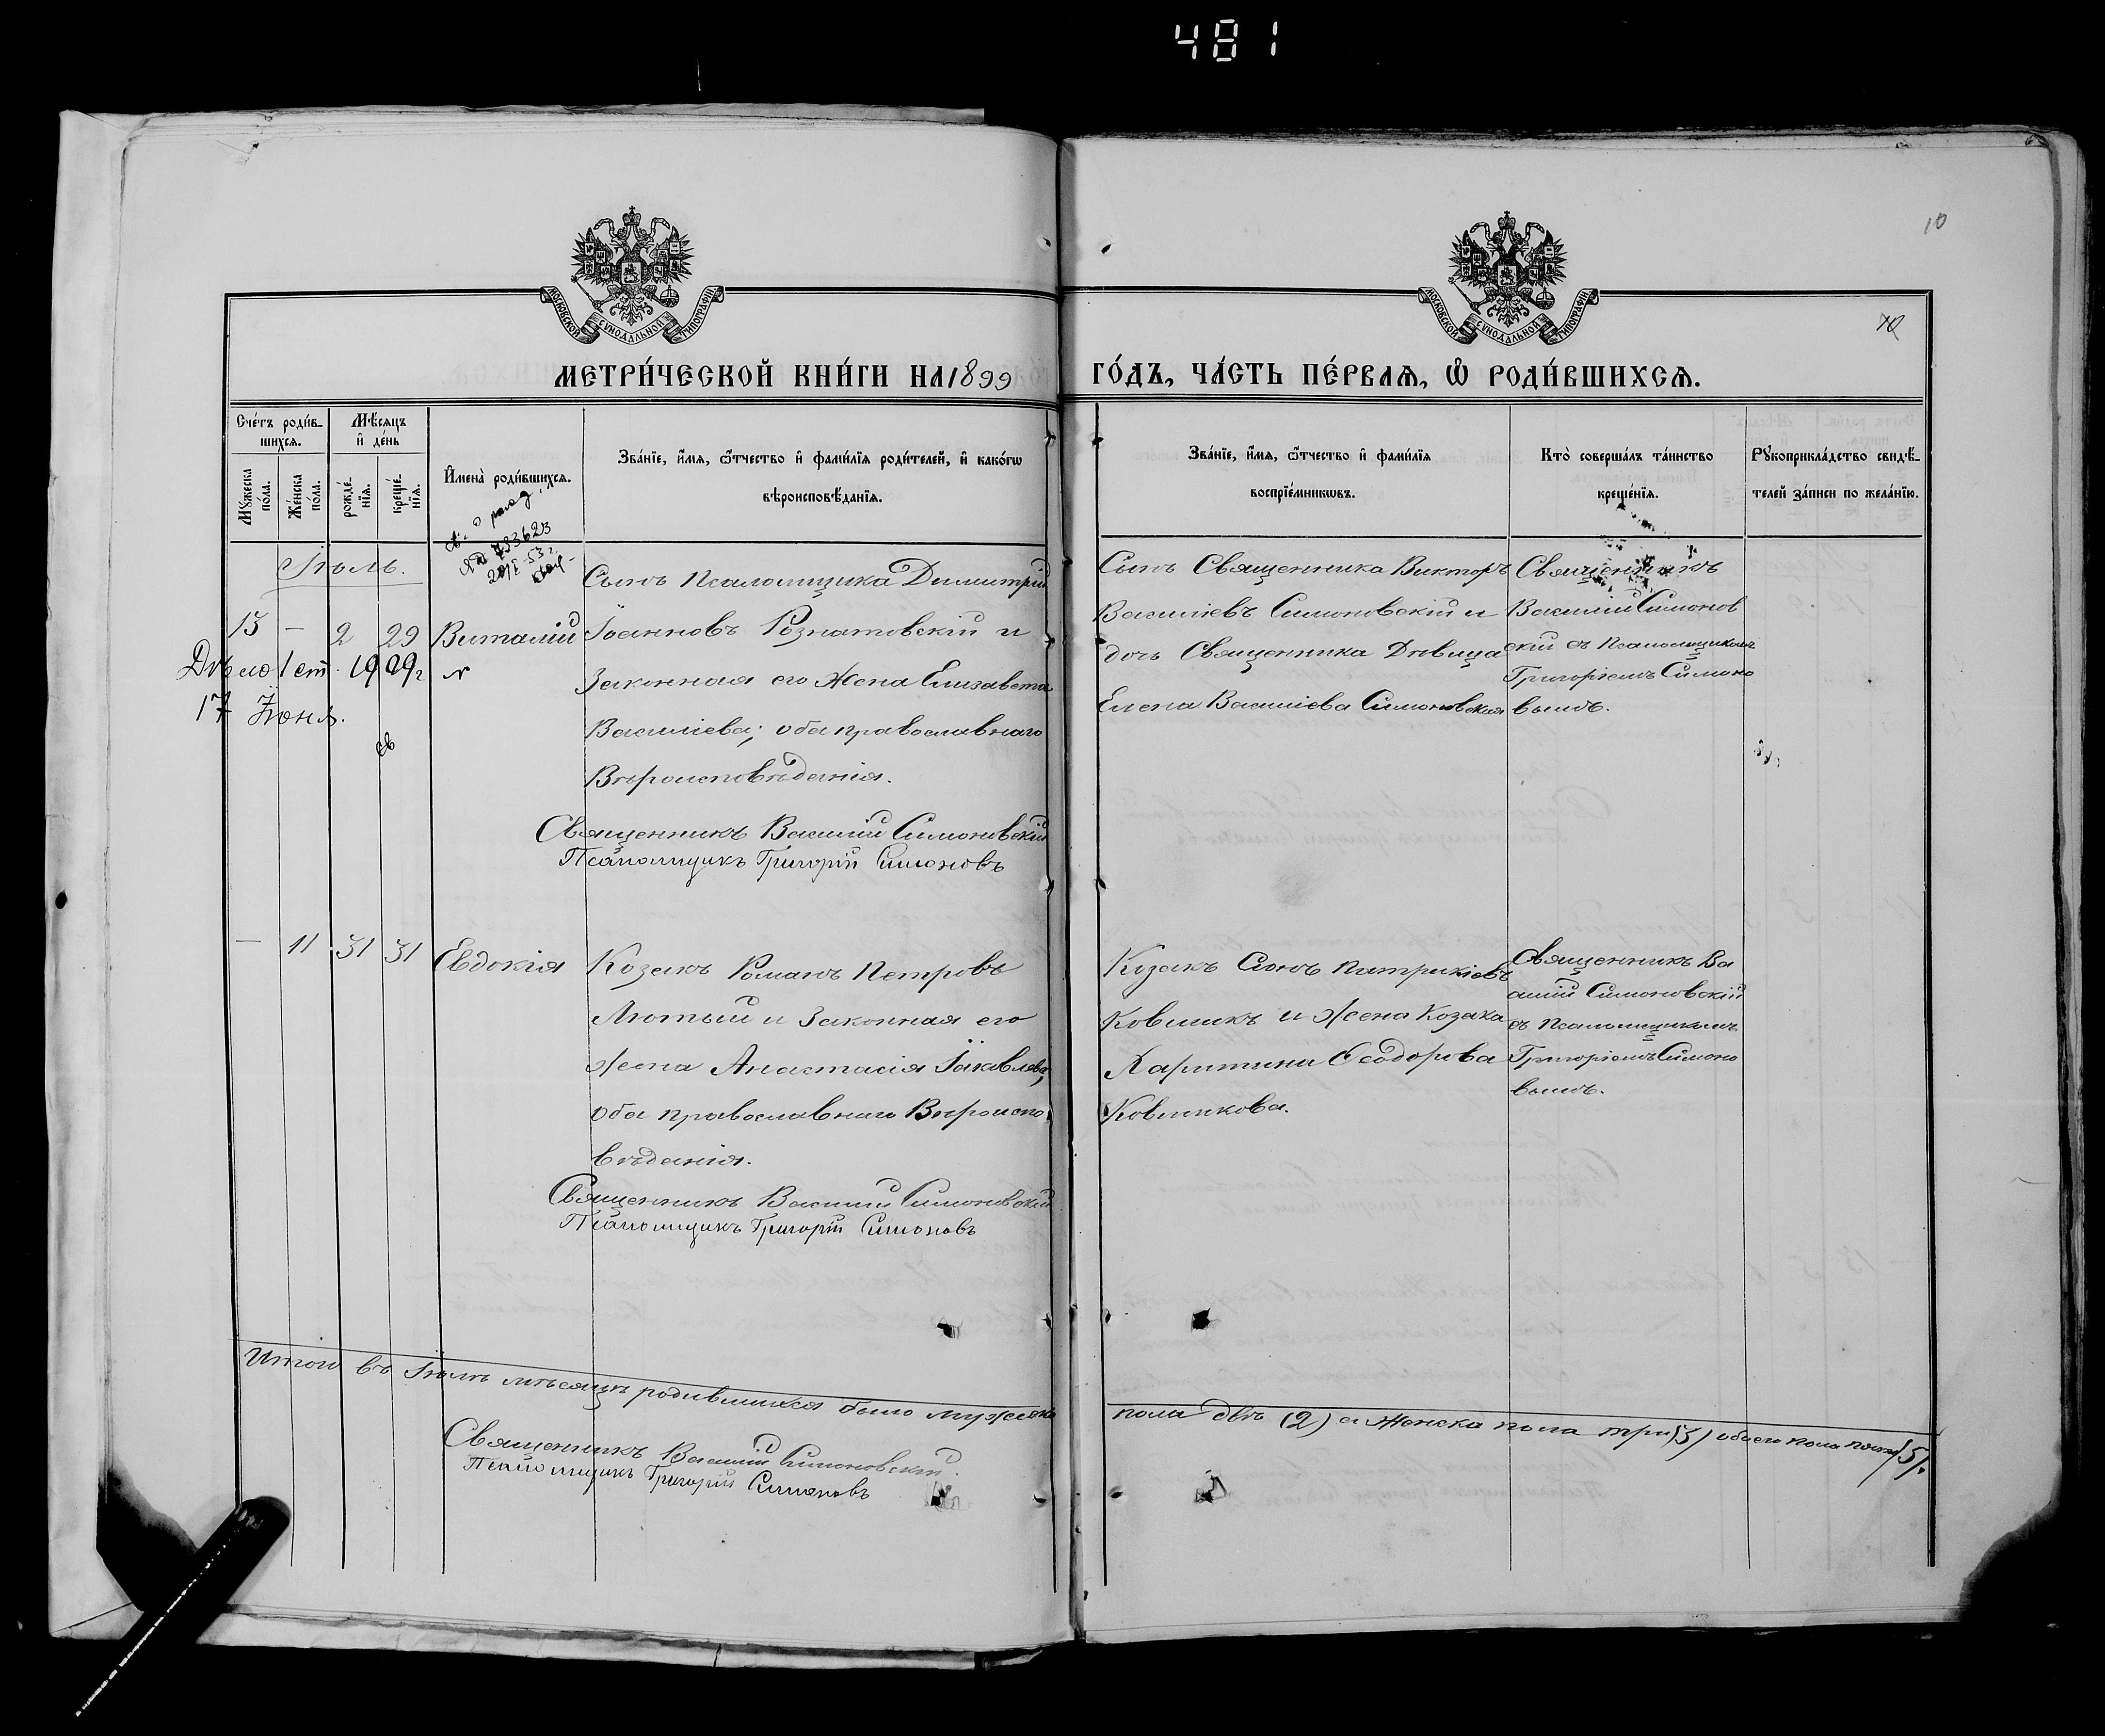 481
10
МОСКОВСКОЙ СУНОДАЛЬНОЙ ТИПОГРАФІИ
МОСКОВСКОЙ СУНОДАЛЬНОЙ ТИПОГРАФІИ
10
МЕТРИ́ЧЕСКОЙ КНИ́ГИ НА 1899 ГО́ДЪ, ЧА́СТЬ ПЕ́РВАЯ, Ѡ҆ РОДИ́ВШИХСЯ.
Сче́тъ роди́в-
шихся.
Мѣ́сяцъ
и҆ де́нь
Мꙋ́жеска
по́ла.
Же́нска
по́ла.
рожде́-
нїя.
креще́-
нїя.
И҆мена̀ роди́вшихся.
Зва́нїе, и҆́мя, ѻ҆́тчество и҆ фами́лїя роди́телей, и҆ како́гѡ
вѣроисповѣ́данїя.
Зва́нїе, и҆́мя, ѻ҆́тчество и҆ фами́лїя
воспрїе́мникѡвъ.
Кто̀ соверша́лъ та́инство
креще́нїя.
Рꙋкоприкла́дство свидѣ́-
телей за́писи по жела́нїю.
Іюль.
13 — 2 29 Виталій
Сынъ Псаломщика Димитрій
Іоанновъ Рознатовскій и
Законная его Жена Елизавета
Василіева; оба православнаго
Вѣроисповѣданія.
Священникъ Василій Симоновскій
Псаломщикъ Григорій Симоновъ
Сынъ Священника Викторъ
Василіевъ Симоновскій и
дочь Священника Дѣвица
Елена Василіева Симоновская
Священникъ
Василій Симонов
скій съ Псаломщикомъ
Григоріемъ Симоно
вымъ.
1929г
17 Іюня.
— 11 31 31 Евдокія
Козакъ Романъ Петровъ
Лютый и Законная его
Жена Анастасія Іаковлева,
оба православнаго Вѣроиспо
вѣданія.
Священникъ Василій Симоновскій
Псаломщикъ Григорій Симоновъ
Козакъ Сѵонъ Патрикіевъ
Ковшикъ и Жена Козака
Харитина Ѳеодорова
Ковшикова.
Священникъ Ва
силій Симоновскій
съ Псаломщикомъ
Григоріемъ Симоно
вымъ.
Итого въ Іюлѣ мѣсяцѣ родившихся было мужска пола два (2) а Женска пола три (3) обоего пола пять (5).
Священникъ Василій Симоновскій.
Псаломщикъ Григорій Симоновъ